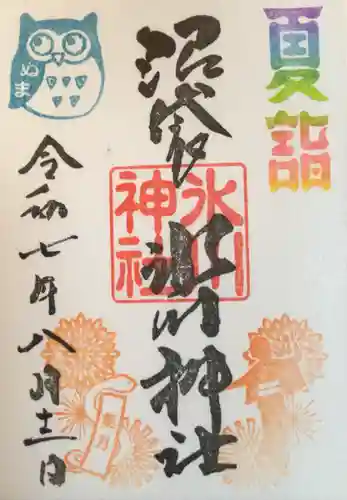 夏詣
沼袋
氷川神社
氷川
神社
令和七年八月十二日
ぬま